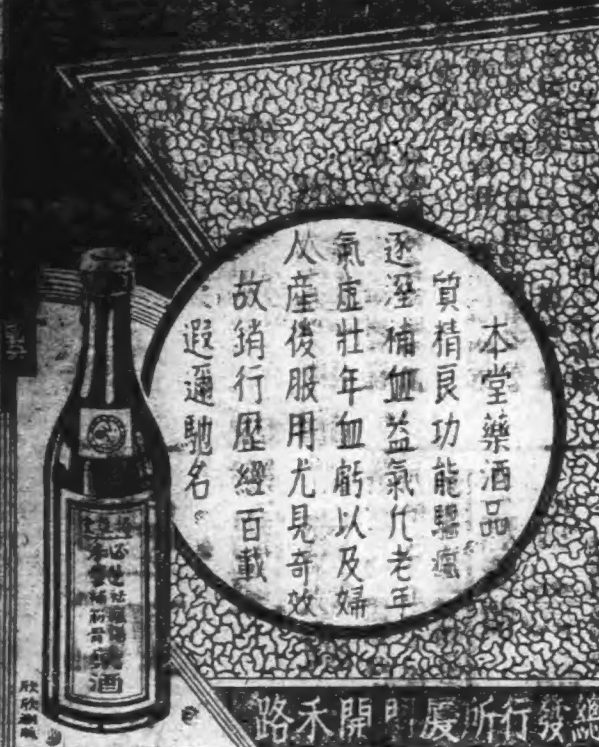 本堂藥酒品
質精良功能驅瘋
逐溼補血益氣凡老年
氣虛壯年血虧以及婦
人產後服用尤見奇效
故銷行歷經百載
遐邇馳名
總發行所廈門開禾路
藥酒
欣欣